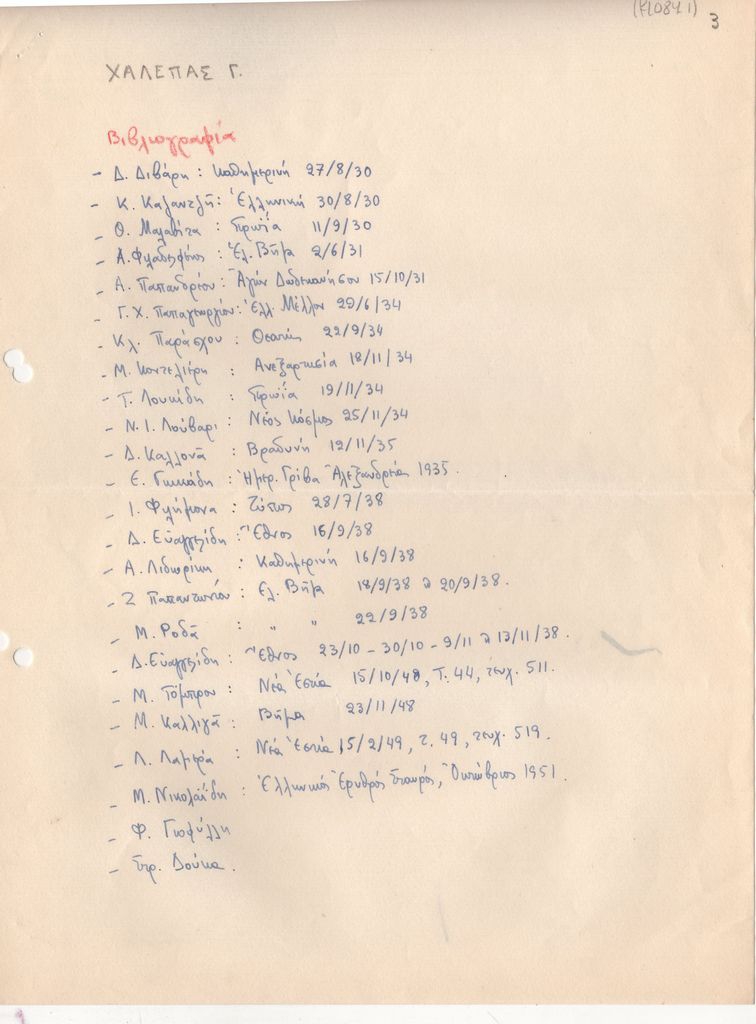 (FL0841) 3
ΧΑΛΕΠΑΣ Γ.
Βιβλιογραφία
- Δ. Διβάρη : Καθημερινή 27/8/30
- Κ. Καζαντζῆ : Ἑλληνική 30/8/30
- Θ. Μαλαβέτα : Πρωΐα 11/9/30
- Α. Φιλαδελφέως : Ἐλ. Βῆμα 2/6/31
- Α. Παπανδρέου : Ἀγών Δωδεκανήσου 15/10/31
- Γ. Χ. Παπαγεωργίου : Ἑλλ. Μέλλον 29/6/34
- Κλ. Παράσχου : 22/9/34
- Μ. : Ανεξαρτησία 18/11/34
- Τ. Λουκίδη : Πρωΐα 19/11/34
- Ν. Ι. Λούβαρι : Νέος Κόσμος 25/11/34
- Δ. Καλλονᾶ : Βραδυνή 12/11/35
- Ε. : Ἡμερ. Γρίβα Ἀλεξανδρείας 1935.
- Ι. Φιλήμονα : Τύπος 28/7/38
- Δ. Εὐαγγελίδη : Ἔθνος 16/9/38
- Α. Λιδωρίκη : Καθημερινή 16/9/38
- Ζ. Παπαντωνίου : Ελ. Βῆμα 18/9/38 & 20/9/38.
- Μ. Ροδᾶ : " " 22/9/38
- Δ. Εὐαγγελίδη : Ἔθνος 23/10 - 30/10 - 9/11 & 13/11/38.
- Μ. Τόμπρου : Νέα Ἑστία 15/10/48, Τ. 44, τευχ. 511.
- Μ. Καλλιγᾶ : Βῆμα 23/11/48
- Λ. Λαμέρα : Νέα Ἑστία 15/2/49, τ. 49, τευχ. 519.
- Μ. Νικολαΐδη : Ἑλληνικός Ἐρυθρός Σταυρός, Ὀκτώβριος 1951.
- Φ. Γιοφύλλη
- Στρ. Δούκα.